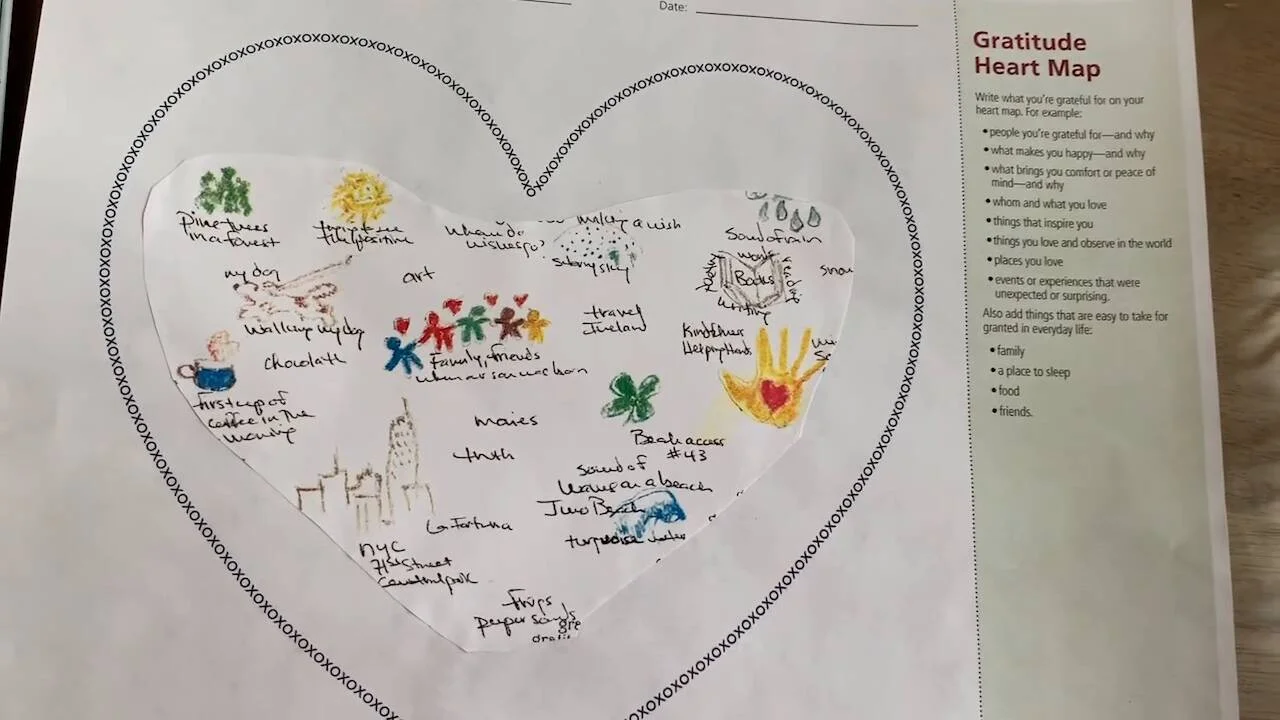 Date:
Gratitude
Heart Map
Write what you're grateful for on your
heart map. For example:
•people you're grateful for—and why
•what makes you happy—and why
•what brings you comfort or peace of
mind—and why
•whom and what you love
•things that inspire you
•things you love and observe in the world
•places you love
•events or experiences that were
unexpected or surprising.
Also add things that are easy to take for
granted in everyday life:
•family
•a place to sleep
•food
•friends.
Pine trees
in a forest
positive
where do
wishes go?
making a wish
starry sky
Sound of rain
my dog
art
words
Books
writing
snow
Walking my dog
travel
Ireland
Kindness
Helping Hands
Chocolate
Family, friends
first cup of
coffee in the
morning
truth
Beach access
#43
sound of
waves on a beach
Beach
turquoise water
La Fortuna
NYC
71st Street
Central park